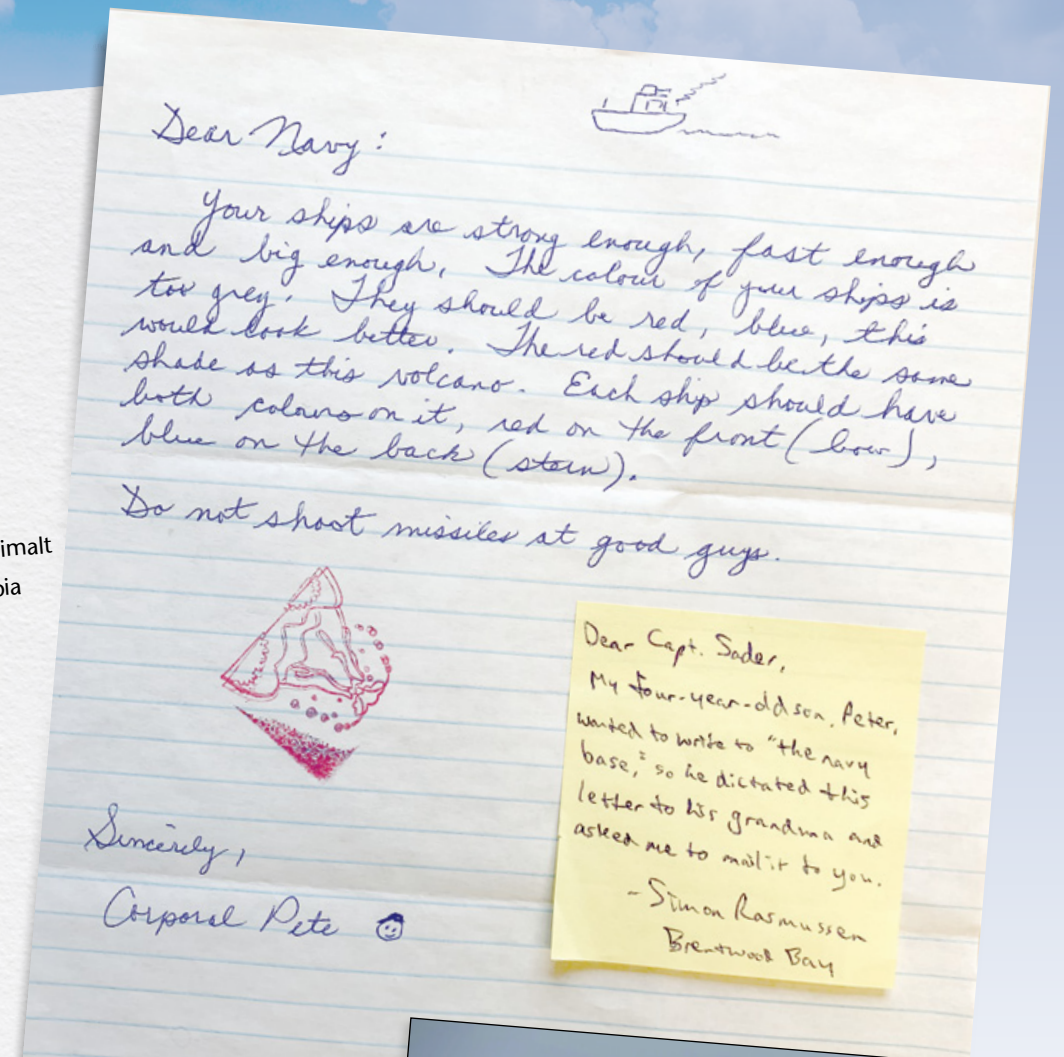 Dear Navy:
Your ships are strong enough, fast enough
and big enough. The colour of your ships is
too grey. They should be red, blue, this
would look better. The red should be the same
shade as this volcano. Each ship should have
both colours on it, red on the front (bow),
blue on the back (stern).
Do not shoot missiles at good guys.
imalt
Dear Capt. Sader,
My four-year-old son, Peter,
wanted to write to "the navy
base," so he dictated this
letter to his grandma and
asked me to mail it to you.
-Simon Rasmussen
Brentwood Bay
Sincerely,
Corporal Pete